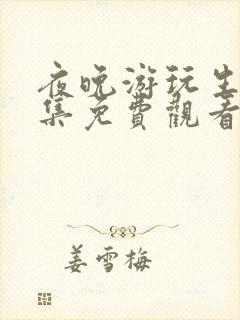 夜晚游玩生
集免費觀看
姜雪梅